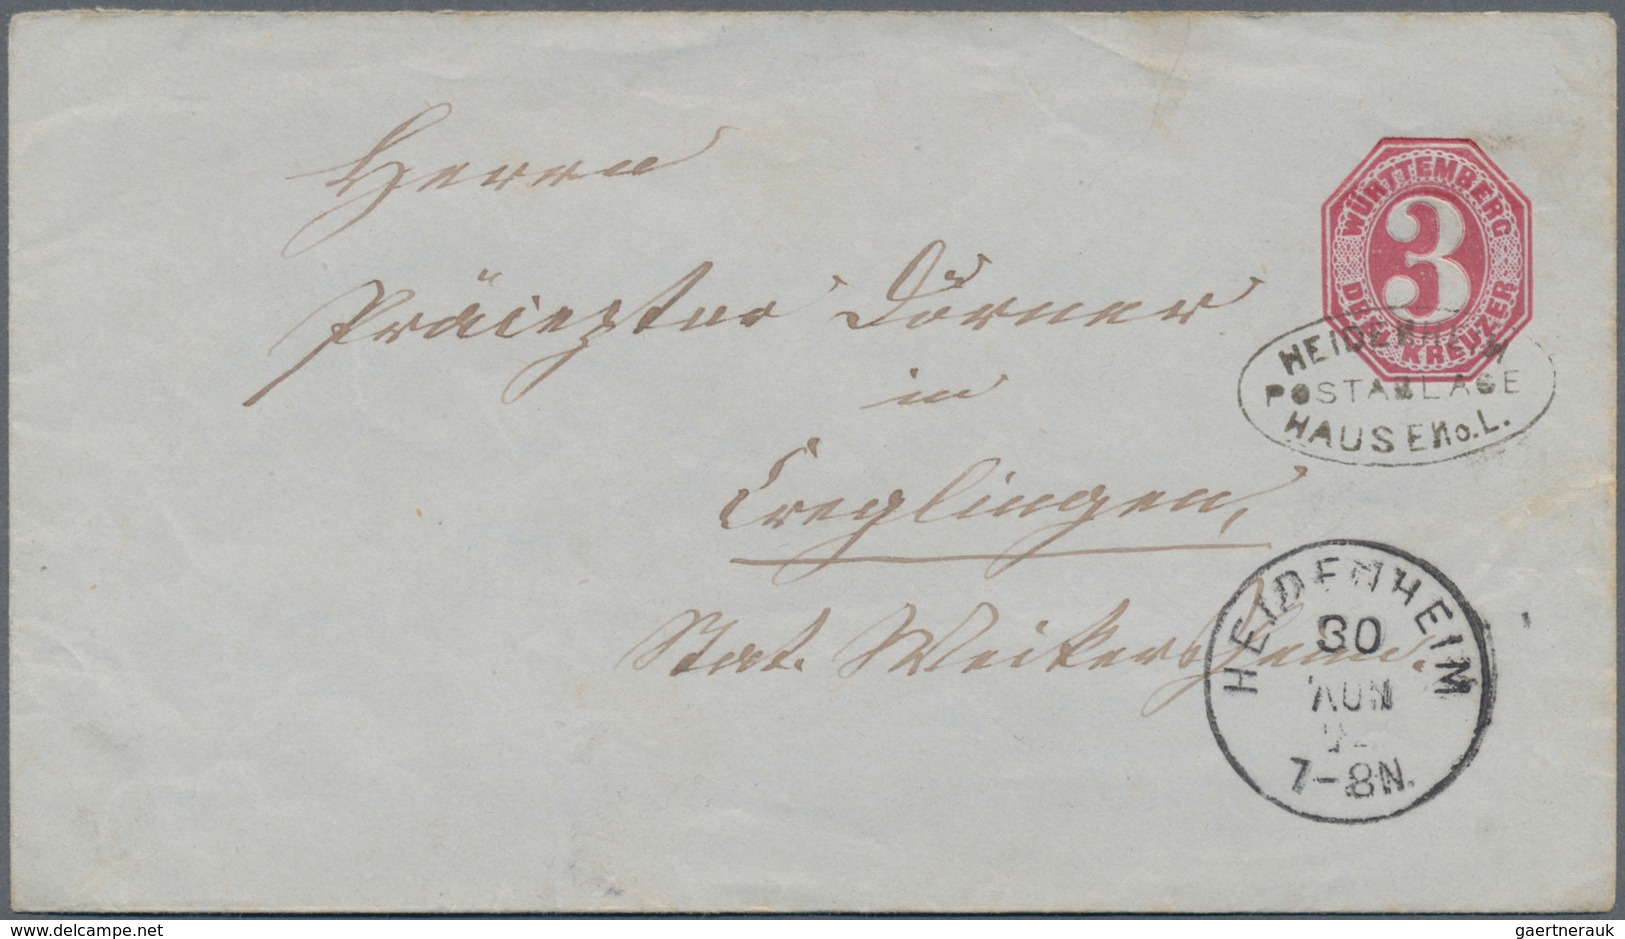 Herrn
Präzeptor Dörner
in
Creglingen,
Stat. Weikersheim.
WÜRTTEMBERG
3
DREI KREUZER
HEIDENHEIM
POSTABLAGE
HAUSEN o.L.
HEIDENHEIM
30
7-8N.
delcampe.net
gaertnerauk